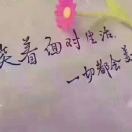 笑着面对生活,
一切都会美